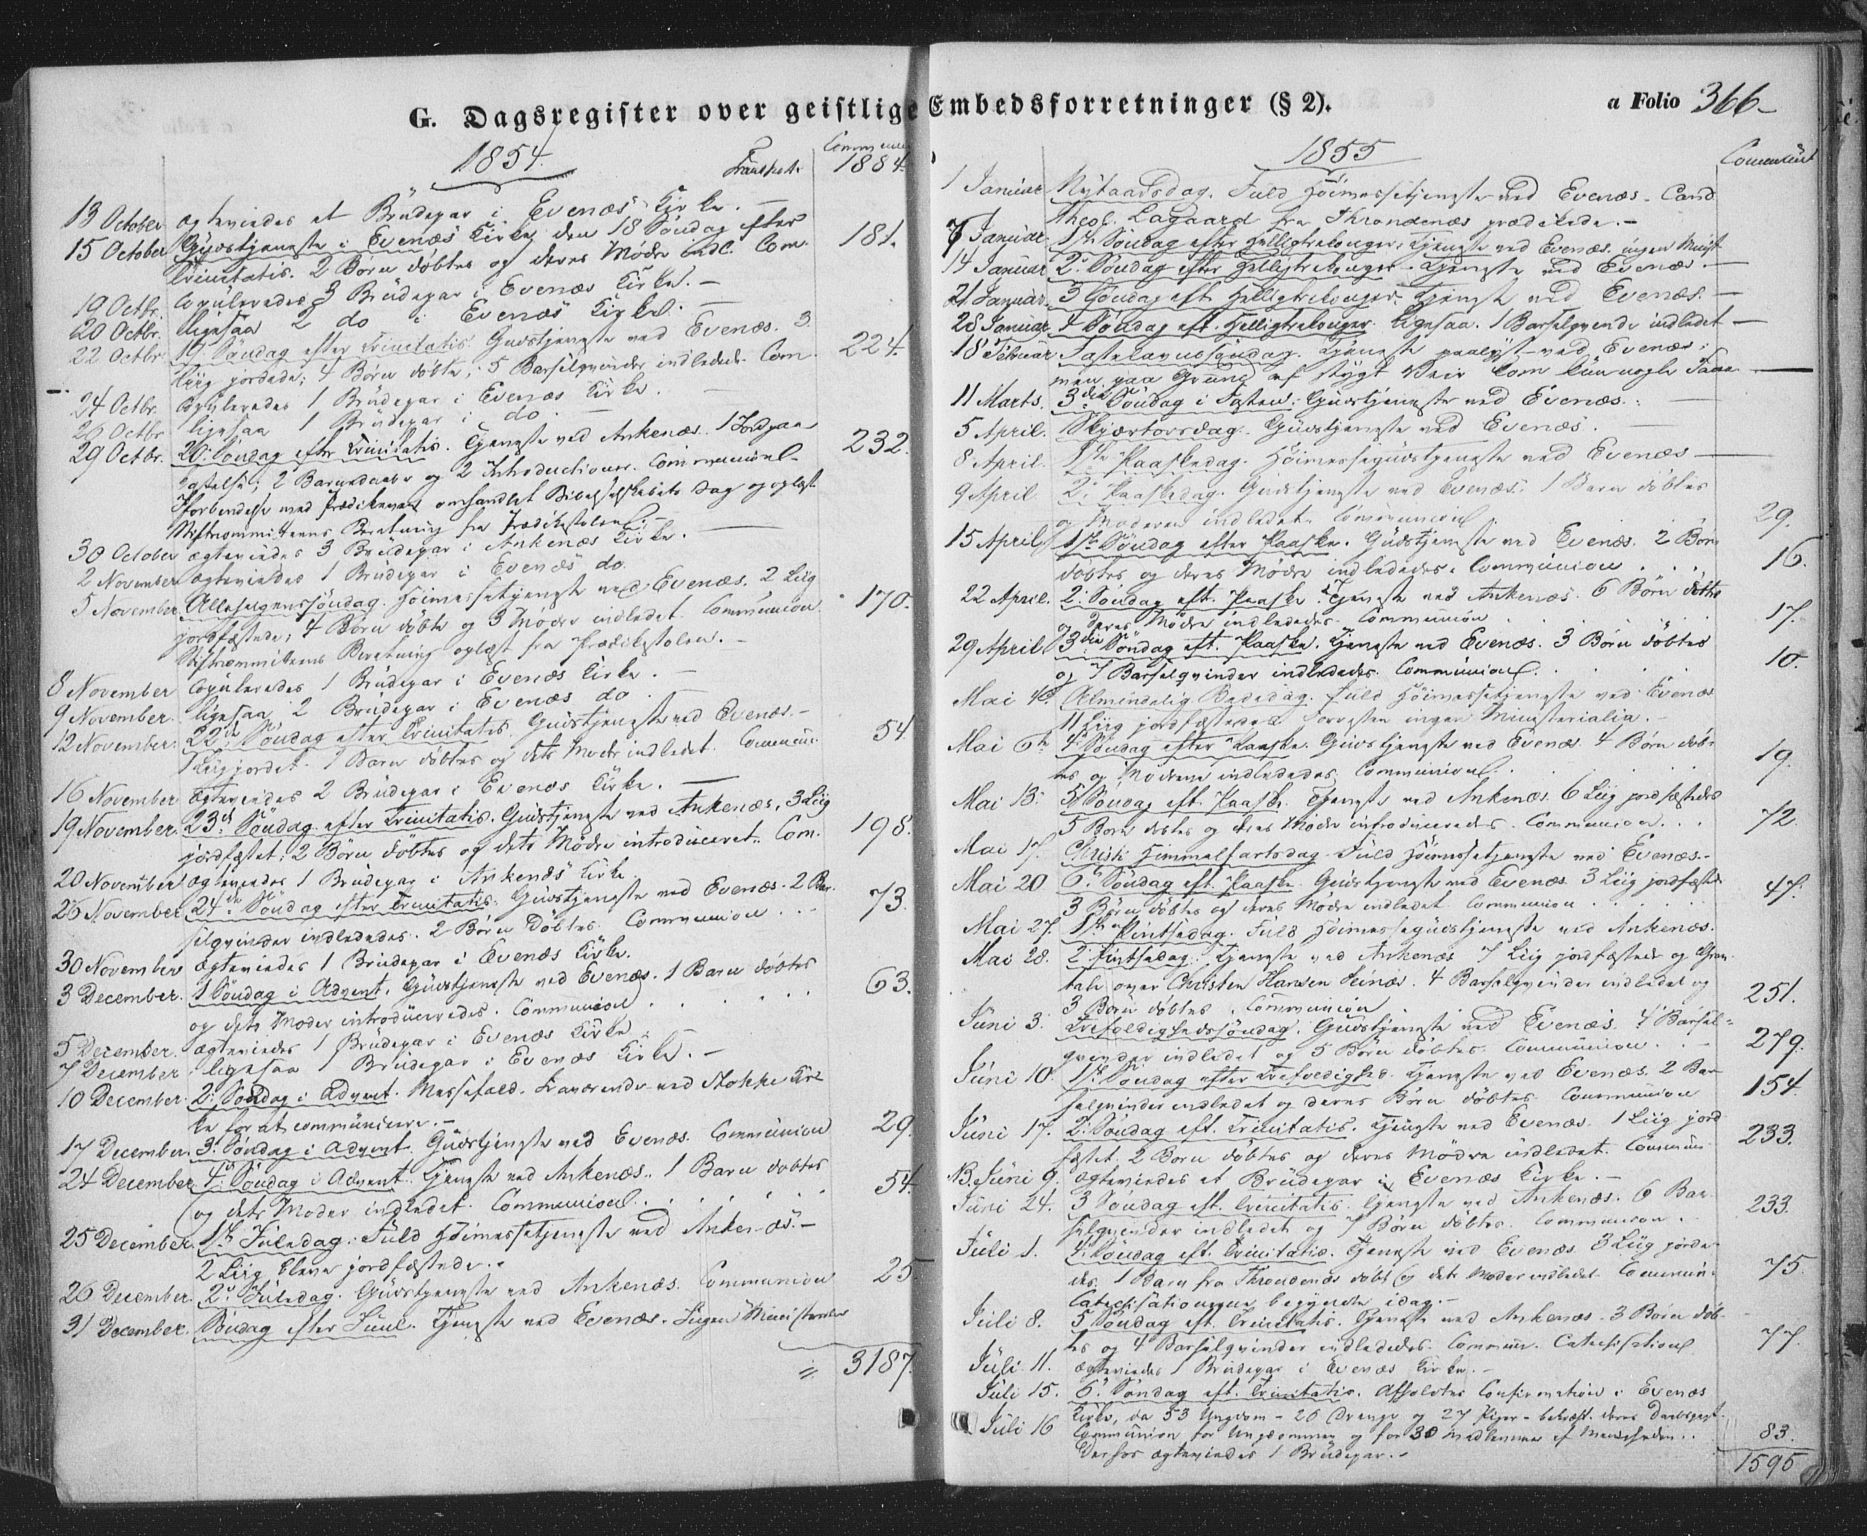 G. Dagsregister over geistlige Embedsforretninger (§ 2).
a Folio 366
1854.
Transport.
Commun
1884.
13 October ægteviedes et Brüdepar i Evenæs Kirke. —
15 October Gudstjeneste i Evenæs Kirke den 18 Søndag efter
Trinitatis. 2 Børn døbtes og deres Mødre indl. Com. 181.
19 Octbr. Copuleredes 3 Brüdepar i Evenæs Kirke. —
20 Octbr. ligesaa 2 do i Evenæs Kirke. —
22 Octbr. 19 Søndag efter Trinitatis. Gudstjeneste ved Evenæs. 3
Liig jordede; 4 Børn døbte; 5 Barselqvinder indledede. Com. 224.
24 Octbr. Copuleredes 1 Brüdepar i Evenæs Kirke.
26 Octbr. ligesaa 1 Brüdepar i do. —
29 Octbr. 20. Søndag efter Trinitatis. Tjeneste ved Ankenæs. 1 Jordpaa
kastelse; 2 Barnedaabe og 2 Introductioner. Communion 232.
Forbindelse med Prædikenen omhandlet Bibelselskabets Sag og oplæst
Beretning fra Prædikestolen. —
30 October ægteviedes 3 Brüdepar i Ankenæs Kirke.
2 November ægteviedes 1 Brüdepar i Evenæs do.
5 November Allehelgenssøndag. Høimessetjeneste ved Evenæs. 2 Liig
jordfæstede; 4 Børn døbte og 3 Mødre indledet. Communion. 170.
Beretning oplæst fra Prædikestolen. —
8 November Copuleredes 1 Brüdepar i Evenæs Kirke. —
9 November. ligesaa 2 Brudepar i Evenæs do
12 November. 22de Søndag efter Trinitatis. Gudstjeneste ved Evenæs. —
1 Liig jordet. 1 Barn døbtes og dets Moder indledet. Commun: 54
16 November ægteviedes 2 Brüdepar i Evenæs Kirke. —
19 November. 23de Søndag efter Trinitatis. Gudstjeneste ved Ankenæs, 3 Liig
jordfæstet; 2 Børn døbtes og dets Mødre introduceret. Com. 198.
20 November ægteviedes 1 Brüdepar i Ankenæs Kirke.
26 November. 24de Søndag efter Trinitatis. Gudstjeneste ved Evenæs. 2 Bar
selqvinder indledede. 2 Børn Døbtes. Communion . . . 73.
30 November ægteviedes 1 Brüdepar i Evenæs Kirke.
3 December. 1 Søndag i Advent. Gudstjeneste ved Evenæs. 1 Barn døbtes
og dets Moder introduceredes. Communion . . . . . 63.
5 December. ægteviedes 1 Brüdepar i Evenæs Kirke
7 December ligesaa 1 Brüdepar i Evenæs Kirke. —
10 December. 2. Søndag i Advent. Messefald. Fraværende ved Stokke Kir
ke for at communicere. —
17 December. 3. Søndag i Advent. Gudstjeneste ved Evenæs. Communion 29.
24 December 4. Søndag i Advent. Tjeneste ved Ankenæs. 1 Barn døbtes
og dets Moder indledet. Communion. . . . . 54.
25 December. 1ste Juledag. Fuld Høimessetjeneste ved Ankenæs. —
2 Liig bleve jordfæstede. .
26 December. 2. Juledag. Gudstjeneste ved Ankenæs. Communion 25
31 December. Søndag efter Juul. Tjeneste ved Evenæs. Ingen Ministerialia
= 3187.
1855
Communicant
1 Januar Nytaarsdag. Fuld Høimessetjeneste ved Evenæs. Cand
theol. Aagaard fra Throndenæs prædikede. —
7 Januar. 1ste Søndag efter Helligtrekonger. Tjeneste ved Evenæs. ingen Minist
14 Januar 2. Søndag efter Helligtrekonger. Tjeneste ved Evenæs. —
21 Januar. 3 Søndag eft. Helligtrekonger. Tjeneste ved Evenæs. —
28 Januar 4 Søndag eft. Helligtrekonger. Ligesaa. 1 Barselqvinde indledet —
18 Februar Fastelavnssøndag. Tjeneste paalyst ved Evenæs;
men paa Grund af stygt Veir kom kun nogle Faae —
11 Marts. 3die Søndag i Fasten. Gudstjeneste ved Evenæs.
5 April. Skjærtorsdag. Gudstjeneste ved Evenæs. —
8 April. 1ste Paaskedag. Høimessegudstjeneste ved Evenæs —
9 April 2. Paaskedag. Gudstjeneste ved Evenæs. 1 Barn døbtes
og Moderen indledet. Communion 29.
15 April 1ste Søndag efter Paaske. Gudstjeneste ved Evenæs. 2 Børn
døbtes og deres Mødre indledede. Communion . . . 16.
22 April. 2. Søndag eft. Paaske. Tjeneste ved Ankenæs. 6 Børn døbte
og deres Mødre indledede. Communion . . . . . 17.
29 April 3die Søndag eft. Paaske. Tjeneste ved Evenæs. 3 Børn døbtes
og 7 Barselqvinder indledede. Communion. . . . 10.
Mai 4de Almindelig Bededag. Fuld Høimessetjeneste ved Evenæs
11 Liig jordfæstedes. Forresten ingen Ministerialia. —
Mai 6te 4 Søndag efter Paaske. Gudstjeneste ved Evenæs. 4 Børn døb-
tes og Mødrene indledede. Communion. . . . . 19.
Mai 13. 5te Søndag eft. Paaske. Tjeneste ved Ankenæs. 6 Liig jordfæstede
5 Børn døbtes og deres Mødre introduceredes. Communion. . . 72.
Mai 17. Christi Himmelfartsdag. Fuld Høimessetjeneste ved Evenæs. —
Mai 20 6te Søndag eft. Paaske. Gudstjeneste ved Evenæs. 3 Liig jordfæst
3 Børn døbtes og deres Mødre indledet. Communion . . . . 47.
Mai 27. 1ste Pintsedag. Fuld Høimessegudstjeneste ved Ankenæs.
Mai 28. 2. Pintsedag. Tjeneste ved Ankenæs 7 Liig jordfæstede og Gra
tale over Christen Hansen. 4 Barselqvinder indledet og
3 Børn døbtes. Communion . . 251.
Juni 3. Trefoldighedssøndag. Gudstjeneste ved Evenæs. 4 Barsel-
qvinder indledet og 5 Børn døbtes. Communion . . 279.
Juni 10. 1ste Søndag efter Trefoldighed. Tjeneste ved Evenæs. 2 Bar
selqvinder indledet og deres Børn døbtes. Communion 154.
Juni 17. 2. Søndag eft. Trinitatis. Tjeneste ved Evenæs. 1 Liig jord
fæstet. 2 Børn døbtes og deres Mødre indledet. Commun: 233.
NB. Juni 9. ægteviedes et Brüdepar i Evenæs Kirke. —
Juni 24. 3 Søndag eft. Trinitatis. Tjeneste ved Ankenæs. 6 Bar-
selqvinder indledet og 7 Børn døbtes. Communion . 233.
Juli 1. 4. Søndag eft. Trinitatis. Tjeneste ved Evenæs. 3 Liig jorde-
des. 1 Barn fra Throndenæs døbt og dets Moder indledet. Commun. 75.
Catechisationerne begyndte idag. —
Juli 8. 5 Søndag eft. Trinitatis. Tjeneste ved Ankenæs. 3 Børn døb-
tes og 4 Barselqvinder indledede. Commun. Catechisation 77.
Juli 11. ægteviedes 1 Brüdepar i Evenæs Kirke. —
Juli 15. 6. Søndag eft. Trinitatis. Afholdtes Confirmation i Evenæs
Kirke, da 53 Ungdom — 26 Drenge og 27 Piger — bekræft. deres Daabspagt.
Juli 16 Communion for Ungdommen og for 30 Medlemmer af Menigheden. . 83.
ægteviedes 1 Brüdepar. —
1595